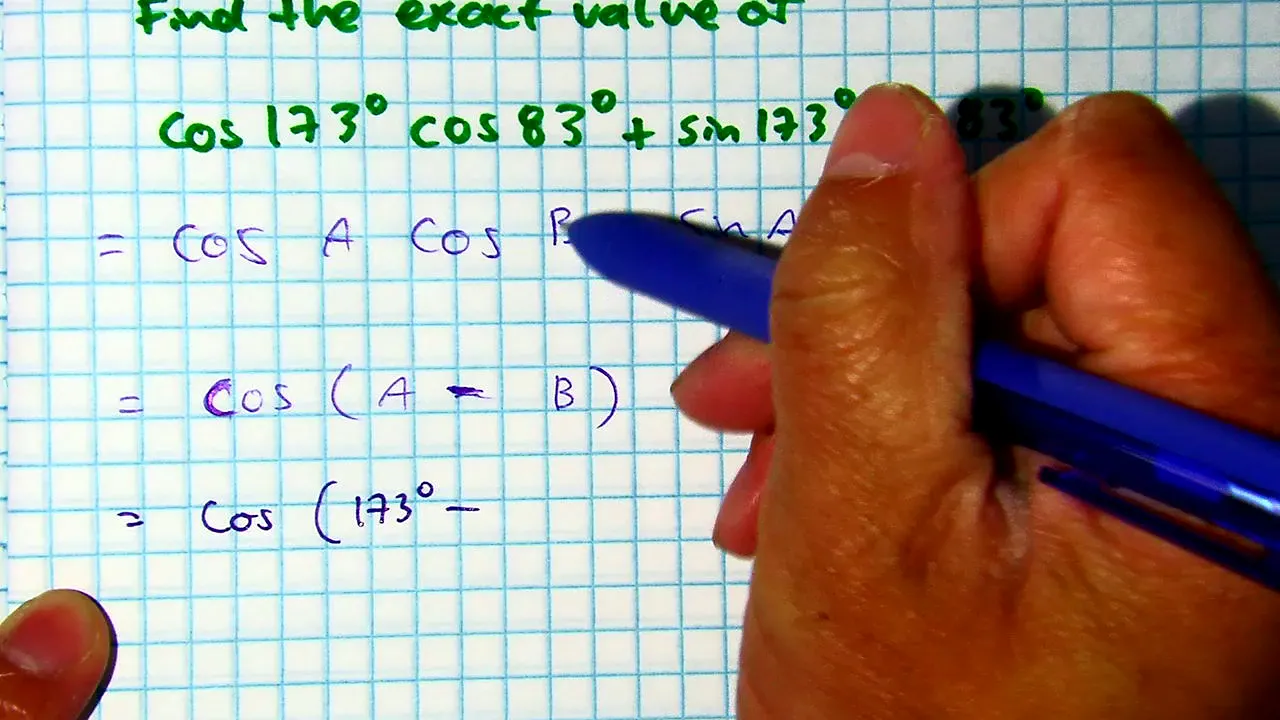 Find the exact value of
cos 173° cos 83° + sin 173° 83°
= cos A cos B sin A
= cos (A - B)
= cos (173° -